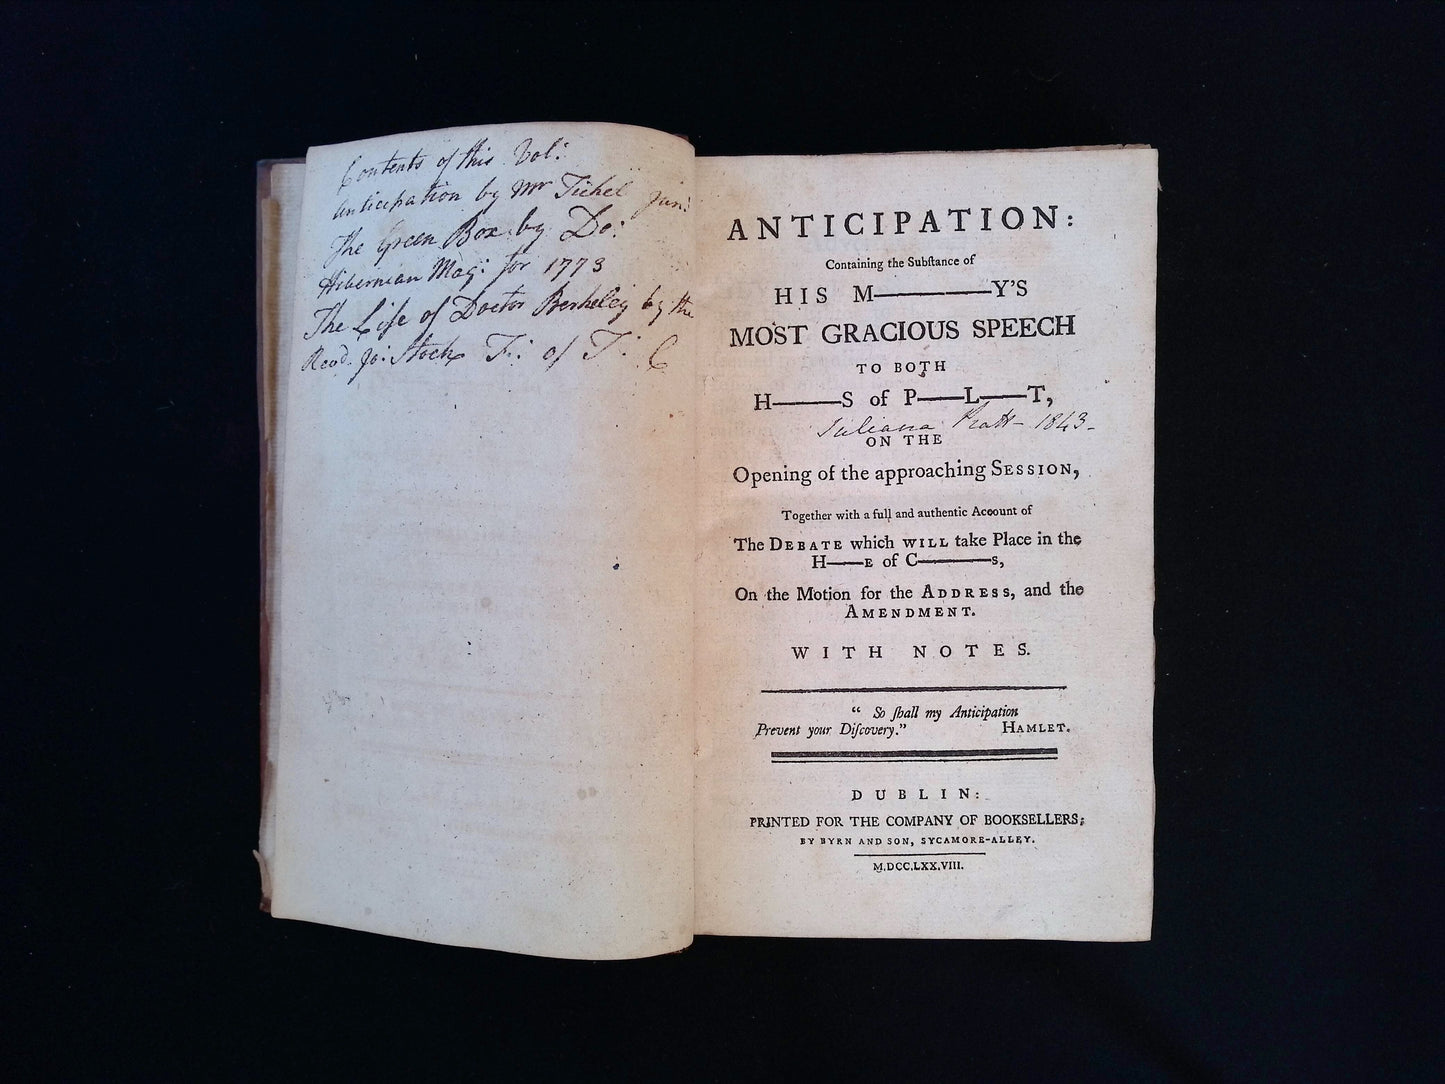 Contents of this Vol:
Anticipation by Mr Tickel Jun:
The Green Box by Do:
Hibernian Mag: for 1773
The Life of Doctor Berkeley by the
Revd. Jo: Stock F: of T: C
ANTICIPATION:
Containing the Subſtance of
HIS M————Y'S
MOST GRACIOUS SPEECH
TO BOTH
H———S of P——L——T,
Juliana Pratt – 1843 –
ON THE
Opening of the approaching SESSION,
Together with a full and authentic Account of
The DEBATE which WILL take Place in the
H——E of C————S,
On the Motion for the ADDRESS, and the
AMENDMENT.
WITH NOTES.
“ So ſhall my Anticipation
Prevent your Diſcovery.” HAMLET.
DUBLIN:
PRINTED FOR THE COMPANY OF BOOKSELLERS;
BY BYRN AND SON, SYCAMORE-ALLEY.
M,DCC.LXX.VIII.